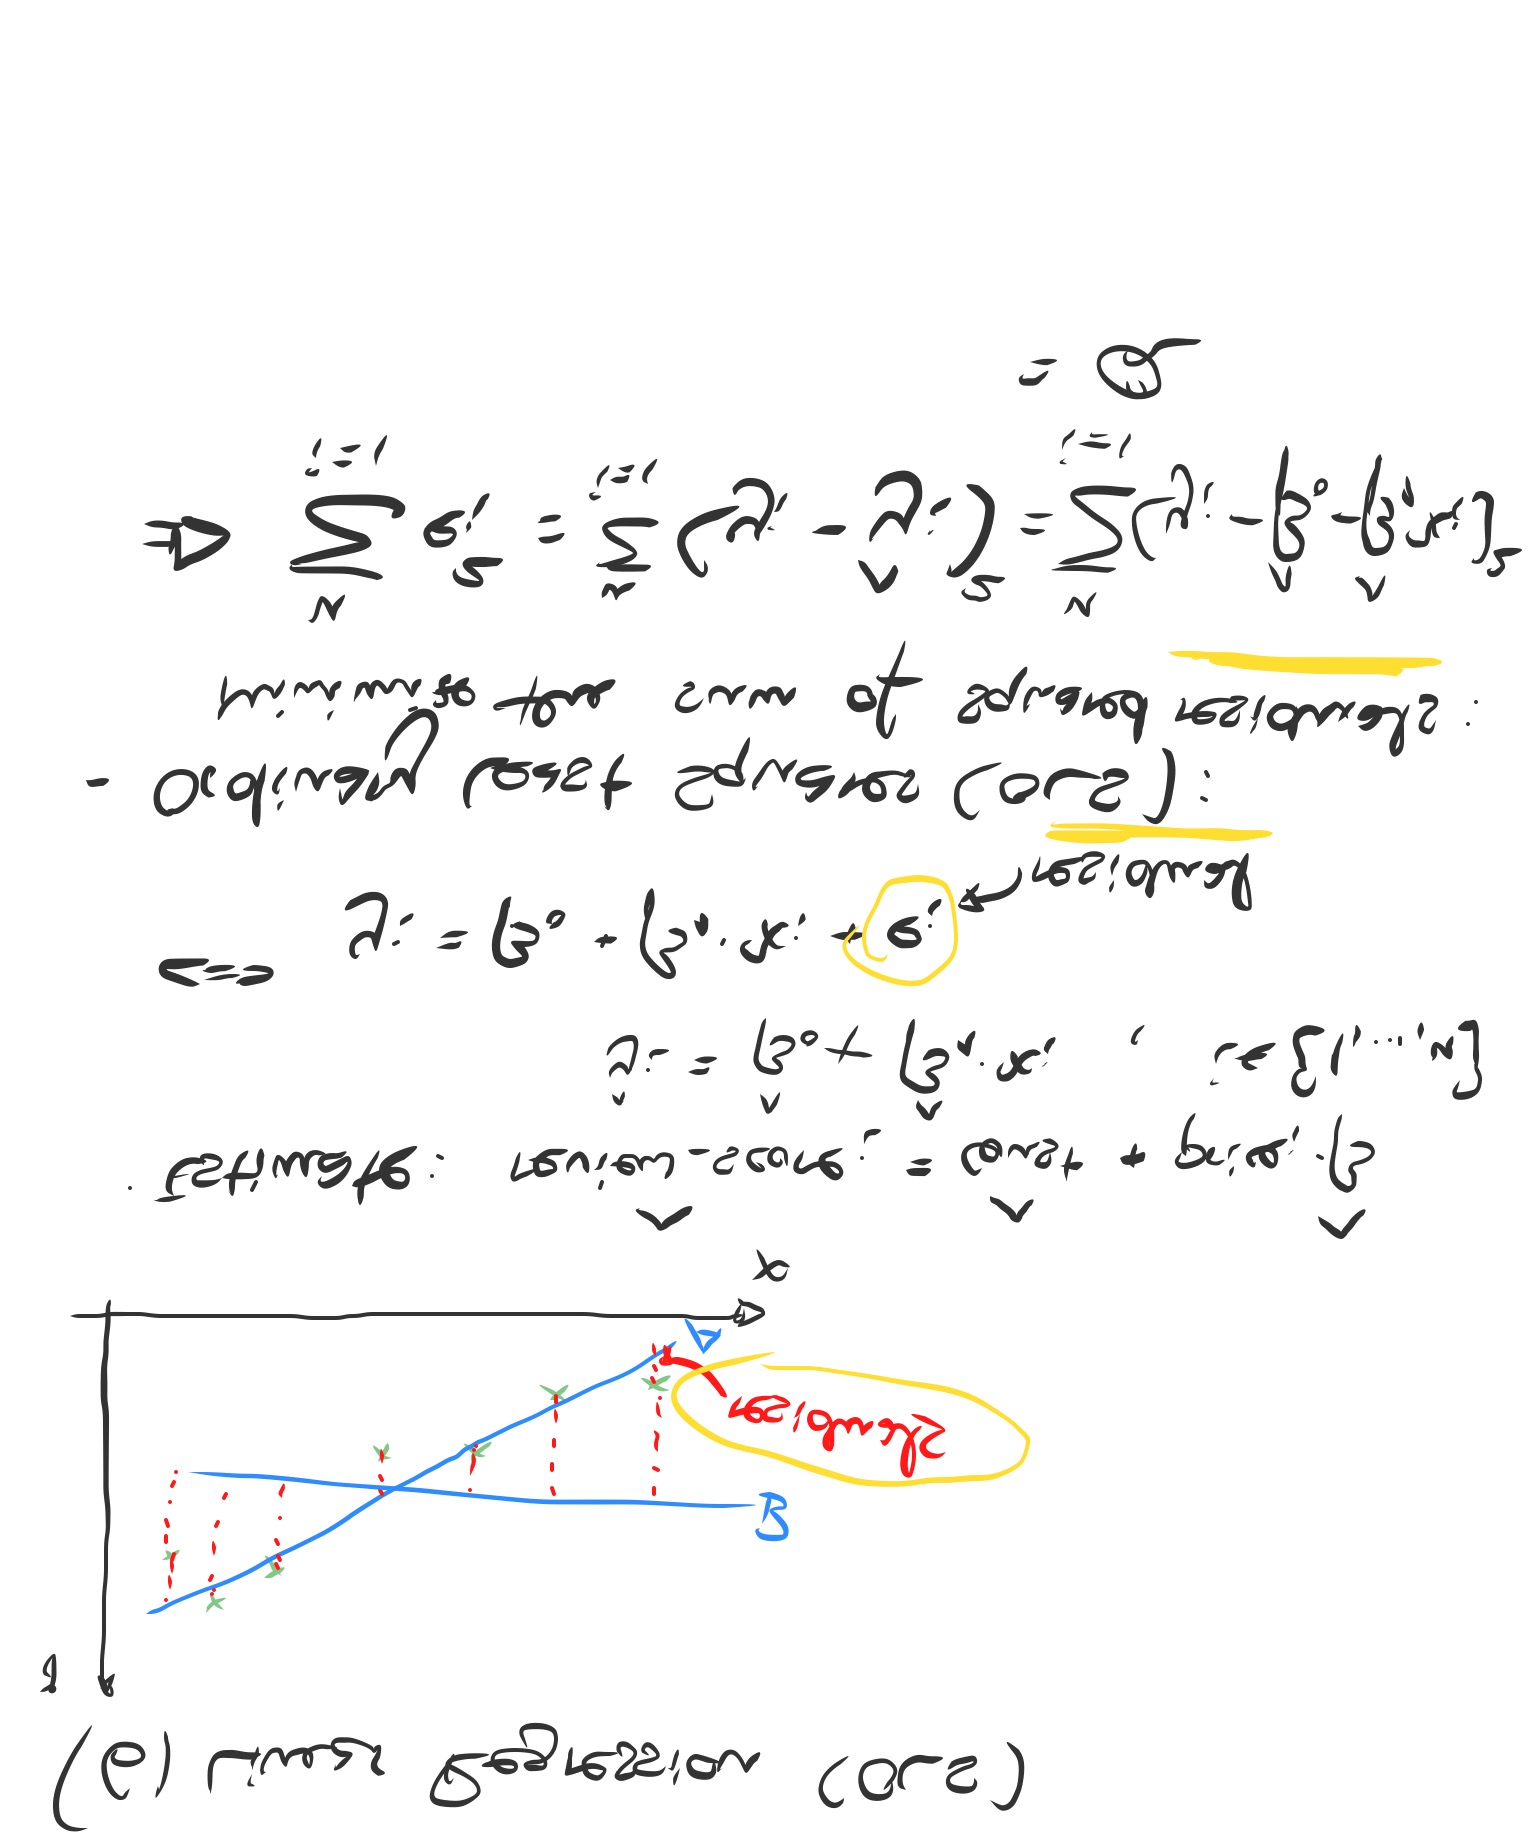 (6) Linear Regression (OLS)
y
B
residuals
A
x
· Estimate: review_score^_i = const^ + price_i · β^
ŷ_i = β̂_0 + β̂_1 · x_i , i ∈ {1,...,n}
<=> y_i = β_0 + β_1 · x_i + e_i
residual
- Ordinary Least Squares (OLS):
Minimize the sum of squared residuals:
⇒ Σ_{i=1}^{n} e_i^2 = Σ_{i=1}^{n} (y_i - ŷ_i)^2 = Σ_{i=1}^{n} (y_i - β̂_0 - β̂_1 x_i)^2
= Q